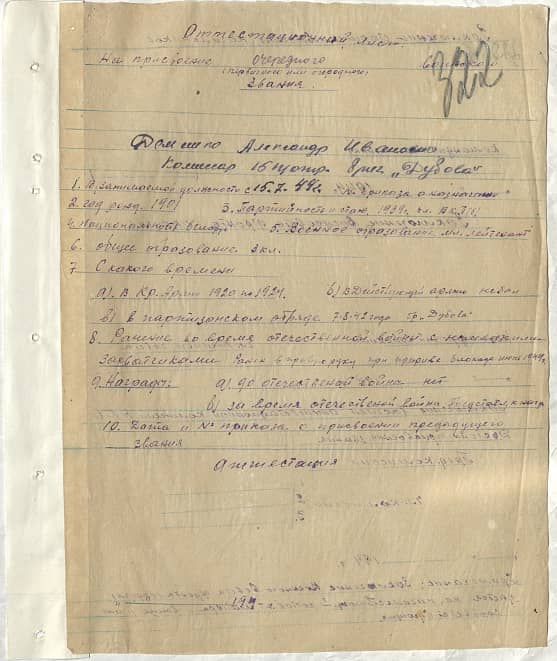 Аттестационный лист
322
На присвоение очередного воинского
(первичного или очередного)
Звания.
Домшно Александр Иванович
Комиссар 16 отр. бриг. „Дубова"
1. В занимаемой должности с 15.7.44г. приказа о назначении
2. год рожд. 190 3. Партийность и стаж. 1939г. чл. ВКП(
4. Национальность белор. 5. Военное образование мл. лейтенант
6. общее образование 3 кл.
7 С какого времени
а) в Кр. Армии 1920 по 1924. б) в Действующей армии не был
в) в партизанском отряде 7.8.42 года бр „Дубова"
8. Ранение во время отечественной войны с немецкими
захватчиками Ранен в правую руку при прорыве блокады июня 1944г.
9. Награды: а) до отечественной войны нет
б) за время отечественной войны Представ. к нагр.
10. Дата и № приказа о присвоении предыдущего
звания
Аттестация
194